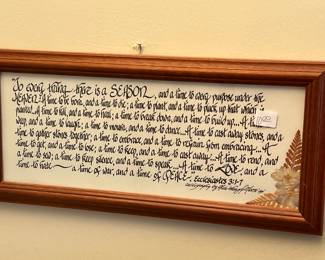 To every thing there is a SEASON, and a time to every purpose under the
HEAVEN: A time to be born, and a time to die; a time to plant, and a time to pluck up that which is
planted... A time to kill, and a time to heal; a time to break down, and a time to build up... A time to
weep, and a time to laugh; a time to mourn, and a time to dance... A time to cast away stones, and a
time to gather stones together; a time to embrace, and a time to refrain from embracing... A
time to get, and a time to lose; a time to keep, and a time to cast away... A time to rend, and
a time to sew; a time to keep silence, and a time to speak... A time to LOVE, and a
time to hate — a time of war, and a time of PEACE. Ecclesiastes 3:1-7
calligraphy by